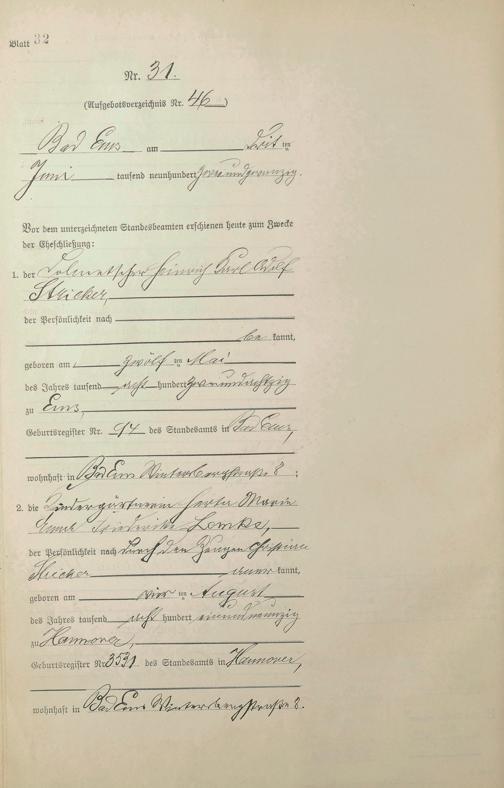 Blatt 32
Nr. 31.
(Aufgebotsverzeichnis Nr. 46)
Bad Ems am
Juni tausend neunhundert zweiundzwanzig.
Vor dem unterzeichneten Standesbeamten erschienen heute zum Zwecke
der Eheschließung:
1. der Dolmetscher Heinrich Karl Adolf
Stricker,
der Persönlichkeit nach
be kannt,
geboren am zwölf ten Mai
des Jahres tausend acht hundert zweiundachtzig
zu Ems,
Geburtsregister Nr. 94 des Standesamts in Bad Ems,
wohnhaft in Bad Ems Winterbergstraße 8;
2. die Kindergärtnerin Herta Marie
Friederike Lemke,
der Persönlichkeit nach durch den Zeugen
Stricker aner kannt,
geboren am vier ten August
des Jahres tausend acht hundert einundneunzig
zu Hannover,
Geburtsregister Nr. 3531 des Standesamts in Hannover,
wohnhaft in Bad Ems Winterbergstraße 8.